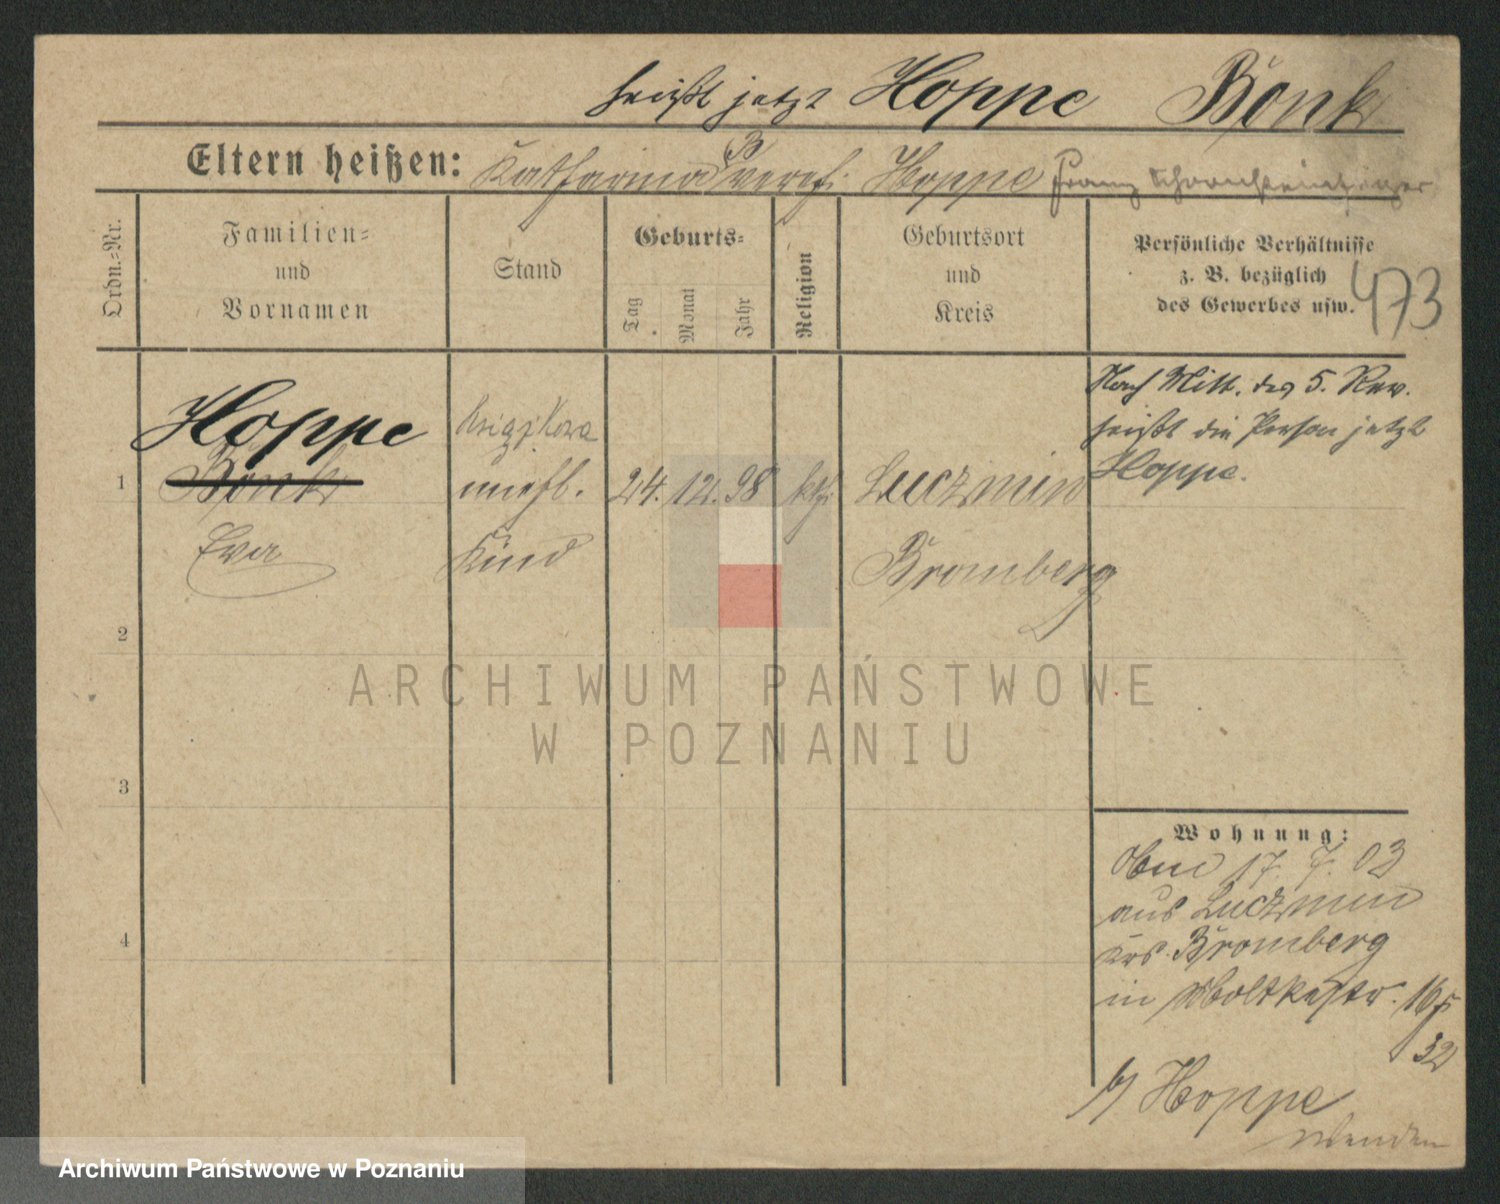 heißt jetzt Hoppe Bonk
Eltern heißen: Katharina B vereh. Hoppe Franz
Ordn.-Nr.
Familien-
und
Vornamen
Stand
Geburts-
Tag
Monat
Jahr
Religion
Geburtsort
und
Kreis
Persönliche Verhältnisse
z. B. bezüglich
des Gewerbes usw.
473
Hoppe
1 Bonk
Eva
unehl.
Kind
24. 12. 98 kth.
Luczmin
Bromberg
Nach Mitt. des 5. Rev.
heißt die Person jetzt
Hoppe.
2
3
4
Wohnung:
17. 7. 03
aus Luczmin
Krs. Bromberg
in Moltkestr. 16
32
b/ Hoppe
Wenden
ARCHIWUM PAŃSTWOWE
W POZNANIU
Archiwum Państwowe w Poznaniu